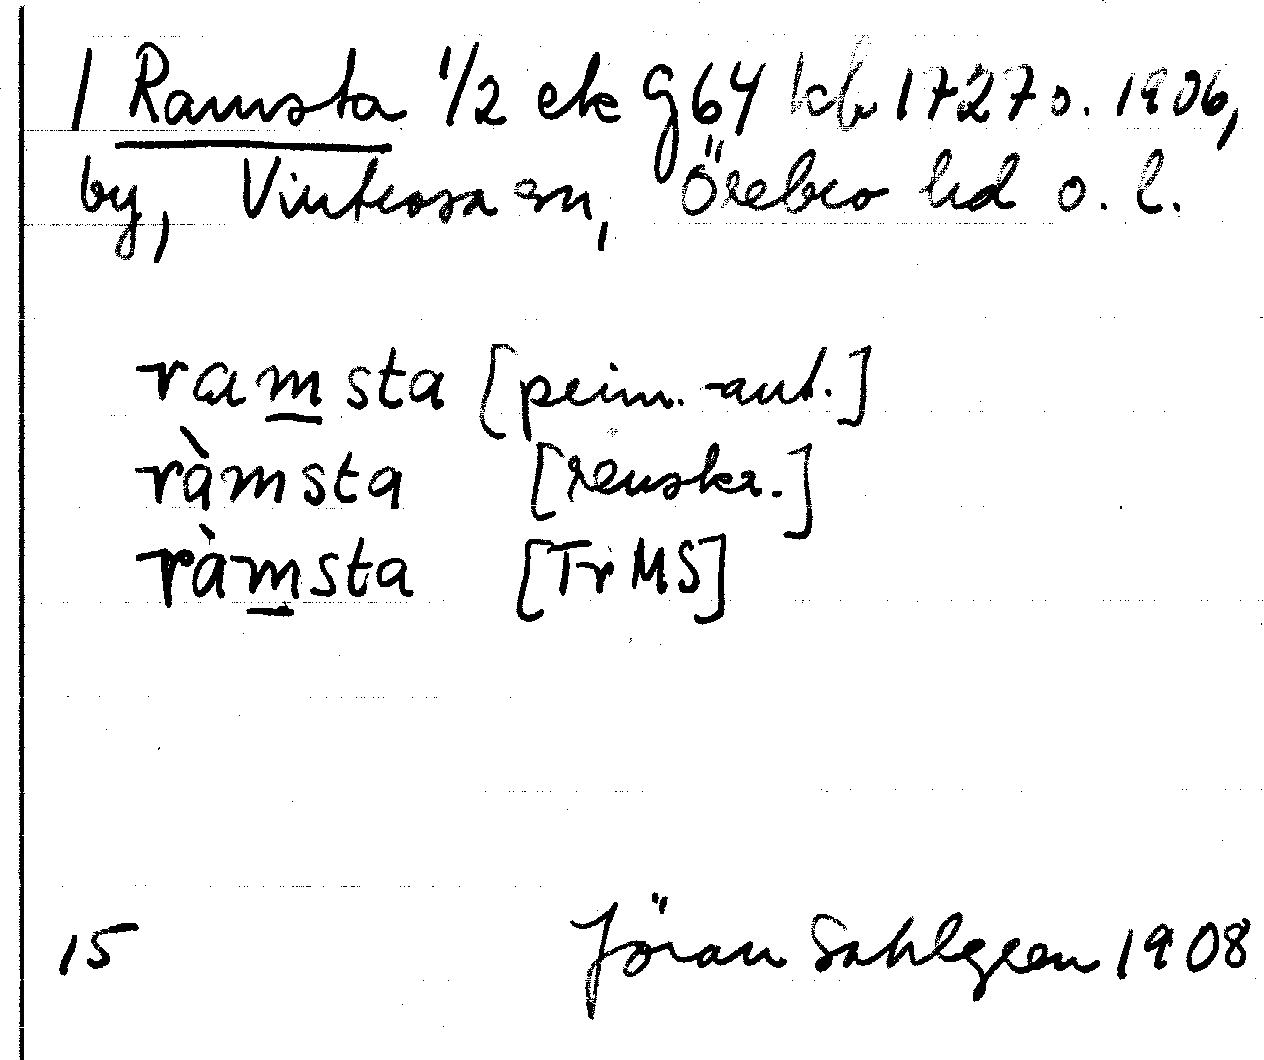 1 Ramsta 1/2 ek G64 kb 1727 o. 1906,
by, Vintrosa sn, Örebro hd o. l.
ramsta [prim.-ant.]
ràmsta [renskr.]
ràmsta [Tr MS]
15 Jöran Sahlgren 1908